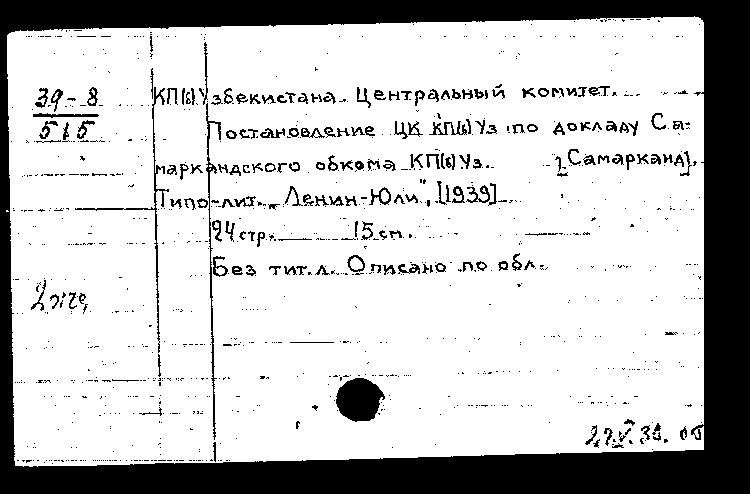 39-8
515
КП(б)Узбекистана. Центральный комитет.
Постановление ЦК КП(б)Уз по докладу Са-
маркандского обкома КП(б)Уз. [Самарканд],
Типо-лит. „Ленин-Юли", [1939]
24 стр. 15 см.
Без тит. л. Описано по обл.
2 экз.